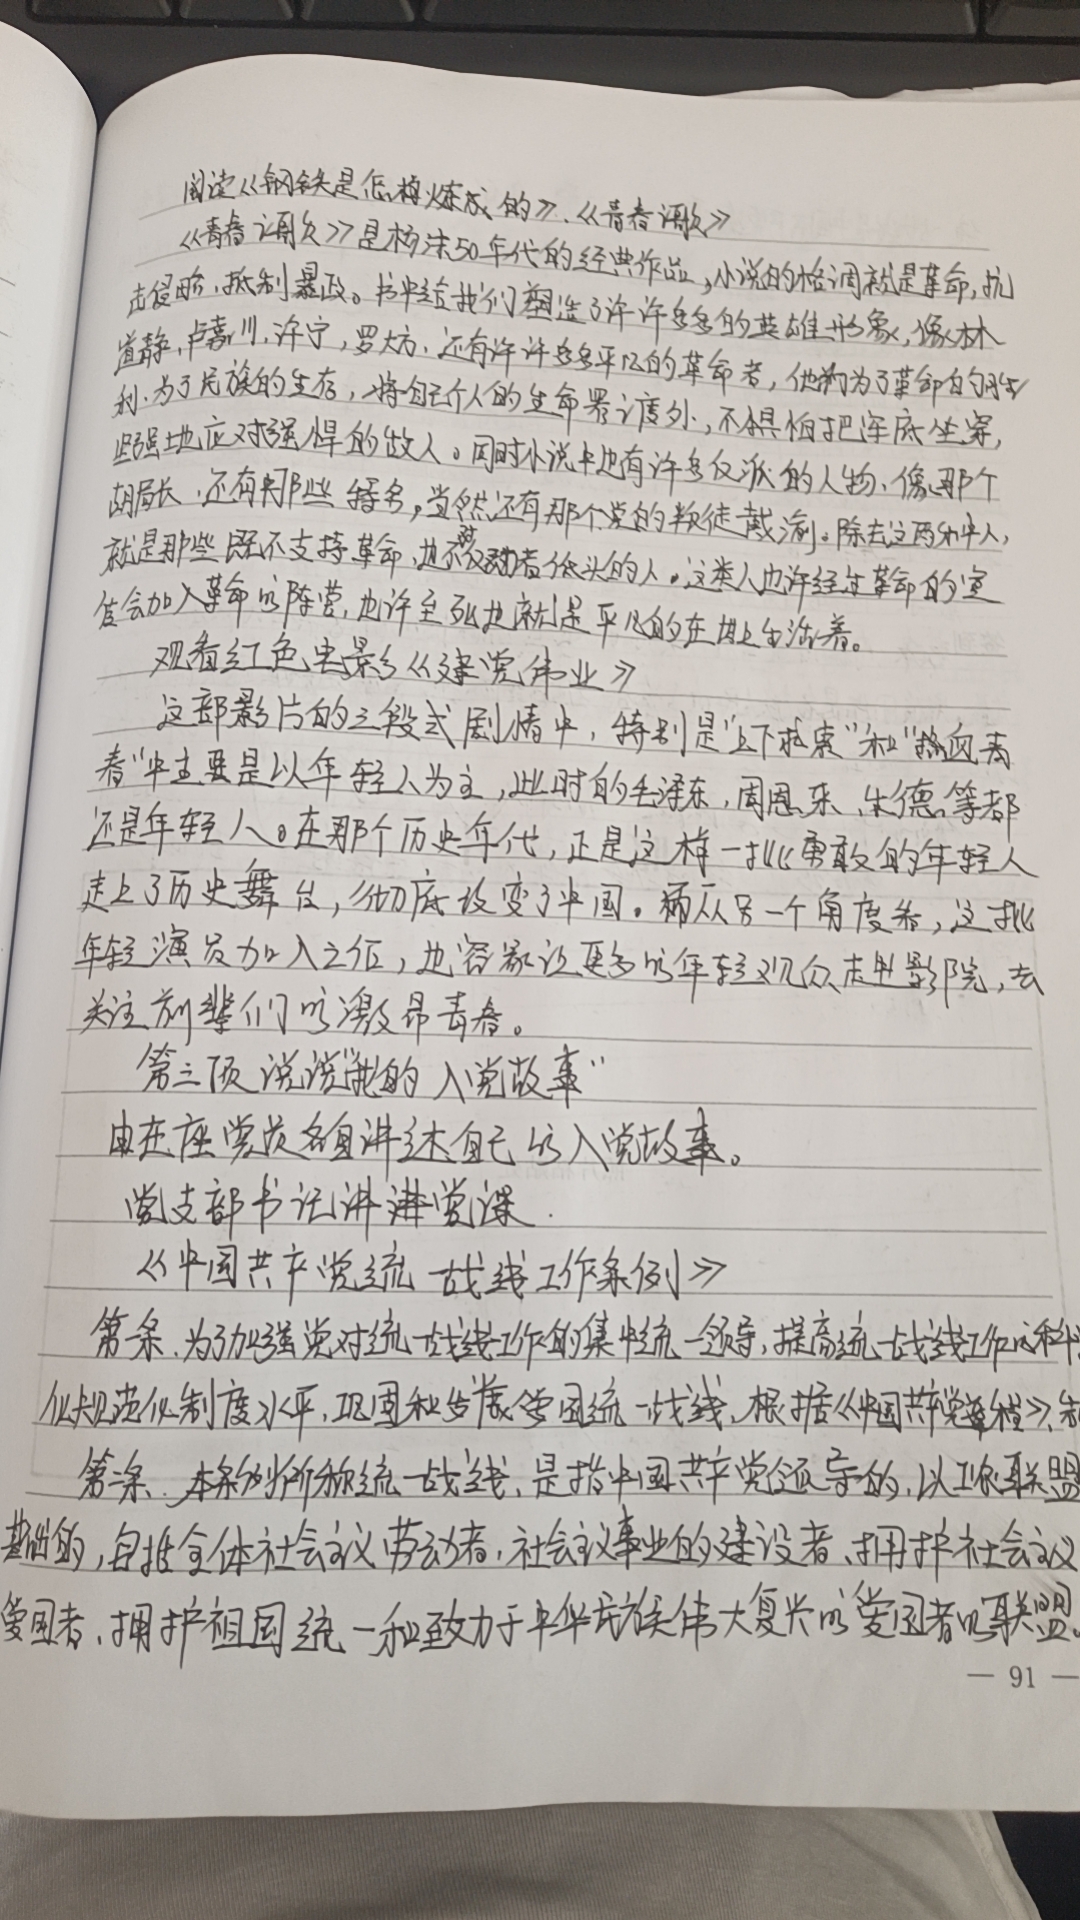 阅读《钢铁是怎样炼成的》.《青春之歌》
《青春之歌》是杨沫50年代的经典作品,小说的格调就是革命,抗
击侵略,抵制暴政。书中给我们塑造了许许多多的英雄形象,像林
道静,卢嘉川,许宁,罗大方,还有许许多多平凡的革命者,他们为了革命的胜
利.为了民族的生存,将自己个人的生命置之度外,不惧怕把牢底坐穿,
坚强地应对强悍的敌人。同时小说中也有许多反派的人物,像那个
胡局长,还有那些特务,当然还有那个党的叛徒戴渝。除去这两种人,
就是那些既不支持革命,也不反动者低头的人。这类人也许经过革命的宣
传会加入革命的阵营,也许至死也就是平凡的在世上生活着。
观看红色电影《建党伟业》
这部影片的三段式剧情中,特别是"上下求索"和"热血青
春"中主要是以年轻人为主,此时的毛泽东,周恩来,朱德等都
还是年轻人。在那个历史年代,正是这样一批勇敢的年轻人
走上了历史舞台,彻底改变了中国。而从另一个角度看,这批
年轻演员加入之后,也容易让更多的年轻观众走进影院,去
关注前辈们的激昂青春。
第三项 说说"我的入党故事"
由在座党员各自讲述自己的入党故事。
党支部书记讲党课.
《中国共产党统一战线工作条例》
第一条.为了加强党对统一战线工作的集中统一领导,提高统一战线工作的科学
化规范化制度水平,巩固和发展爱国统一战线,根据《中国共产党章程》,制
第二条.本条例所称统一战线,是指中国共产党领导的,以工农联盟
基础的,包括全体社会主义劳动者,社会主义事业的建设者,拥护社会主义
爱国者,拥护祖国统一和致力于中华民族伟大复兴的爱国者的联盟.
— 91 —